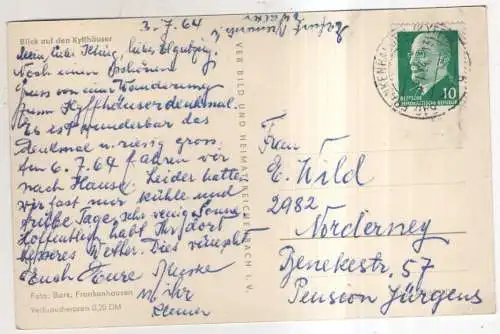 Blick auf den Kyffhäuser
3.7.64
Mein liebe
Noch einen schönen
Gruss von einer Wanderung
zum Kyffhäuserdenkmal.
Es ist wunderbar das
Denkmal u. riesig gross.
Am 6.7.64 fahren wir
nach Hause. Leider hatten
wir fast nur kühle und
trübe Tage, sehr wenig Sonne
Hoffentlich habt Ihr dort
besseres Wetter. Dies wünscht
Euch Eure
Foto: Bark, Frankenhausen
Verbraucherpreis 0,20 DM
VEB BILD UND HEIMAT REICHENBACH I. V.
10
DEUTSCHE
DEMOKRATISCHE REPUBLIK
Frau
E. Wild
2982
Norderney
Benekestr. 57
Pension Jürgens